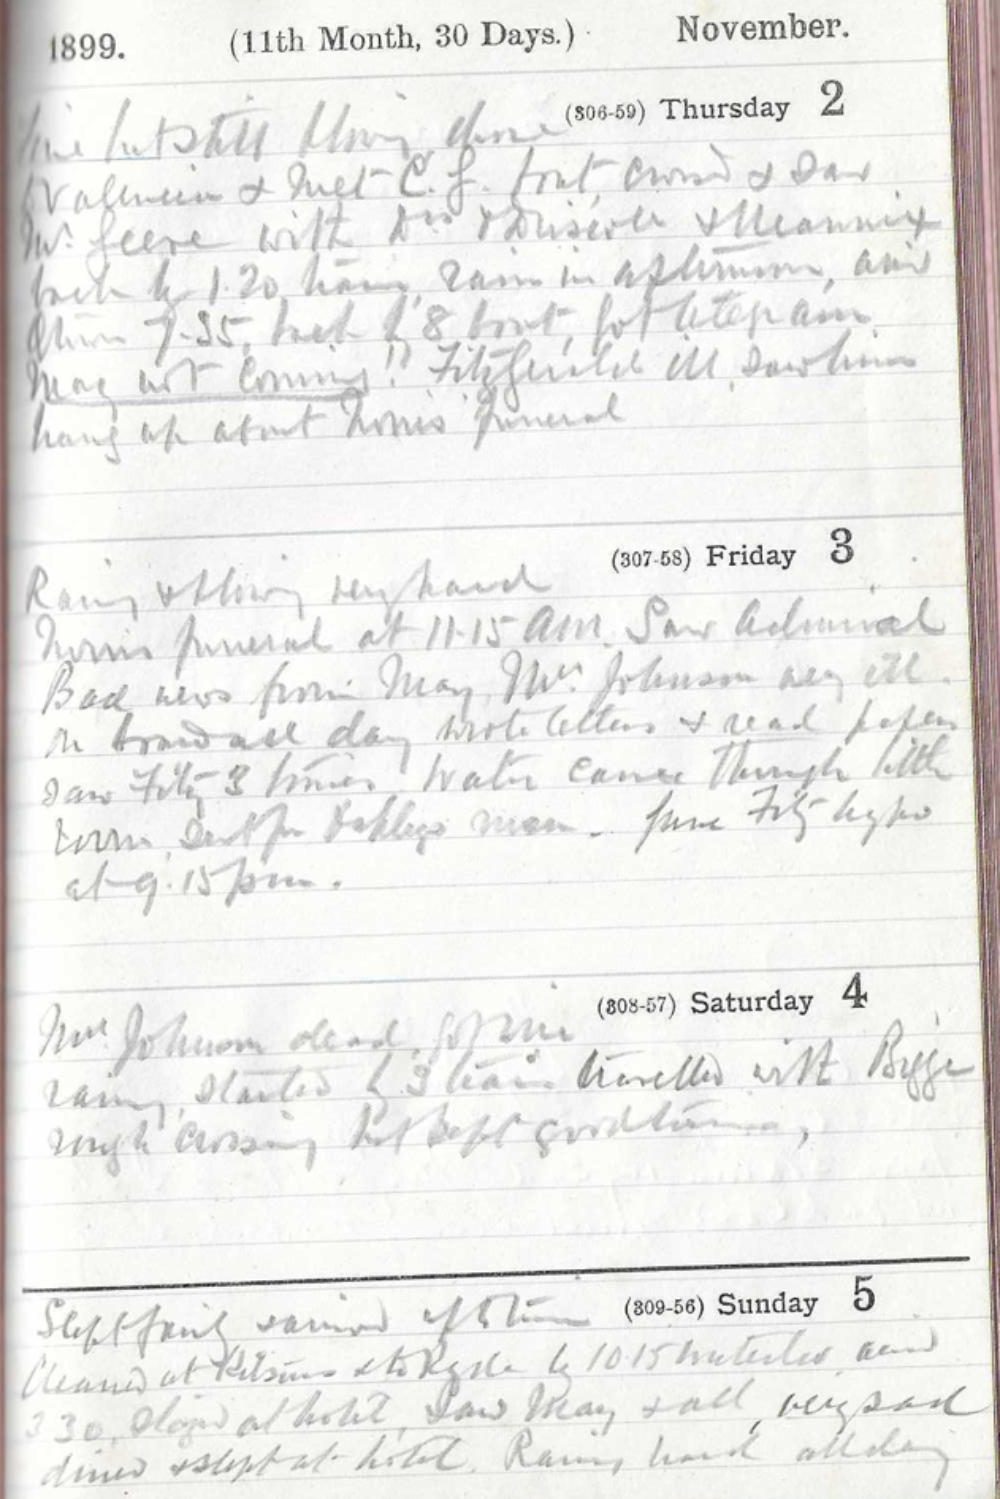 1899. (11th Month, 30 Days.) November.
(306-59) Thursday 2
but still blowing, drove
Valencia & met C. G. boat, crowd & saw
Mr. with Drs. O'Driscoll & Mannix
back by 1.20 train, rain in afternoon,
7.35, back by 8 boat, got telegram
May not coming!! Fitzgerald ill, saw him
hung up about Norris' funeral
(307-58) Friday 3
Rainy & blowing very hard
Norris funeral at 11.15 AM. Saw Admiral
Bad news from May, Mrs. Johnson very ill.
on board all day wrote letters & read papers
saw Fitz 3 times. Water came through little
room, sent for man. gave Fitz hypo
at 9.15 pm.
(308-57) Saturday 4
Mrs. Johnson dead, got
rainy, started by 3 train travelled with Bigge
rough crossing but kept good time,
(309-56) Sunday 5
Slept fairly arrived up to time
Cleaned at & to Ryde by 10.15 Waterloo
3 30, at hotel, Saw May & all, very sad
dined & slept at hotel. Raining hard all day